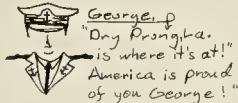 George,
"Dry Prong, La.
is where it's at!"
America is proud
of you George!"